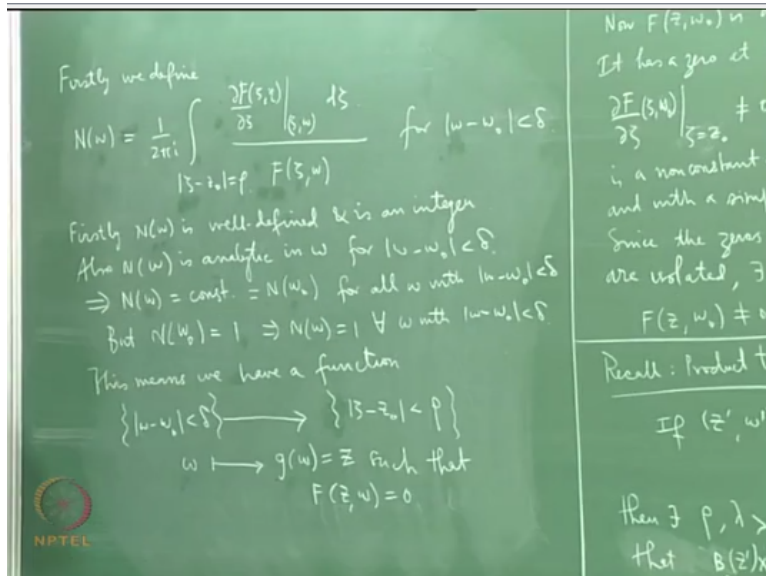 Firstly we define
N(w) = 1/2πi ∫_{|ζ-z₀|=ρ} (∂F(ζ,z)/∂ζ |_{(ζ,w)} dζ) / F(ζ,w) for |w-w₀|<δ.
Firstly N(w) is well-defined & is an integer
Also N(w) is analytic in w for |w-w₀|<δ.
⇒ N(w) = const. = N(w₀) for all w with |w-w₀|<δ
But N(w₀) = 1 ⇒ N(w)=1 ∀ w with |w-w₀|<δ.
This means we have a function
{|w-w₀|<δ} ⟶ {|ζ-z₀|<ρ}
w ⟼ g(w)=z such that
F(z,w)=0
NPTEL
Now F(z,w₀) is
It has a zero at
∂F/∂ζ (ζ,w₀)|_{ζ=z₀} ≠
is a nonconstant
and with a
Since the zeros
are isolated, ∃
F(z,w₀) ≠
Recall: Product
If (z', w'
then ∃ ρ, λ >
that B(z')×